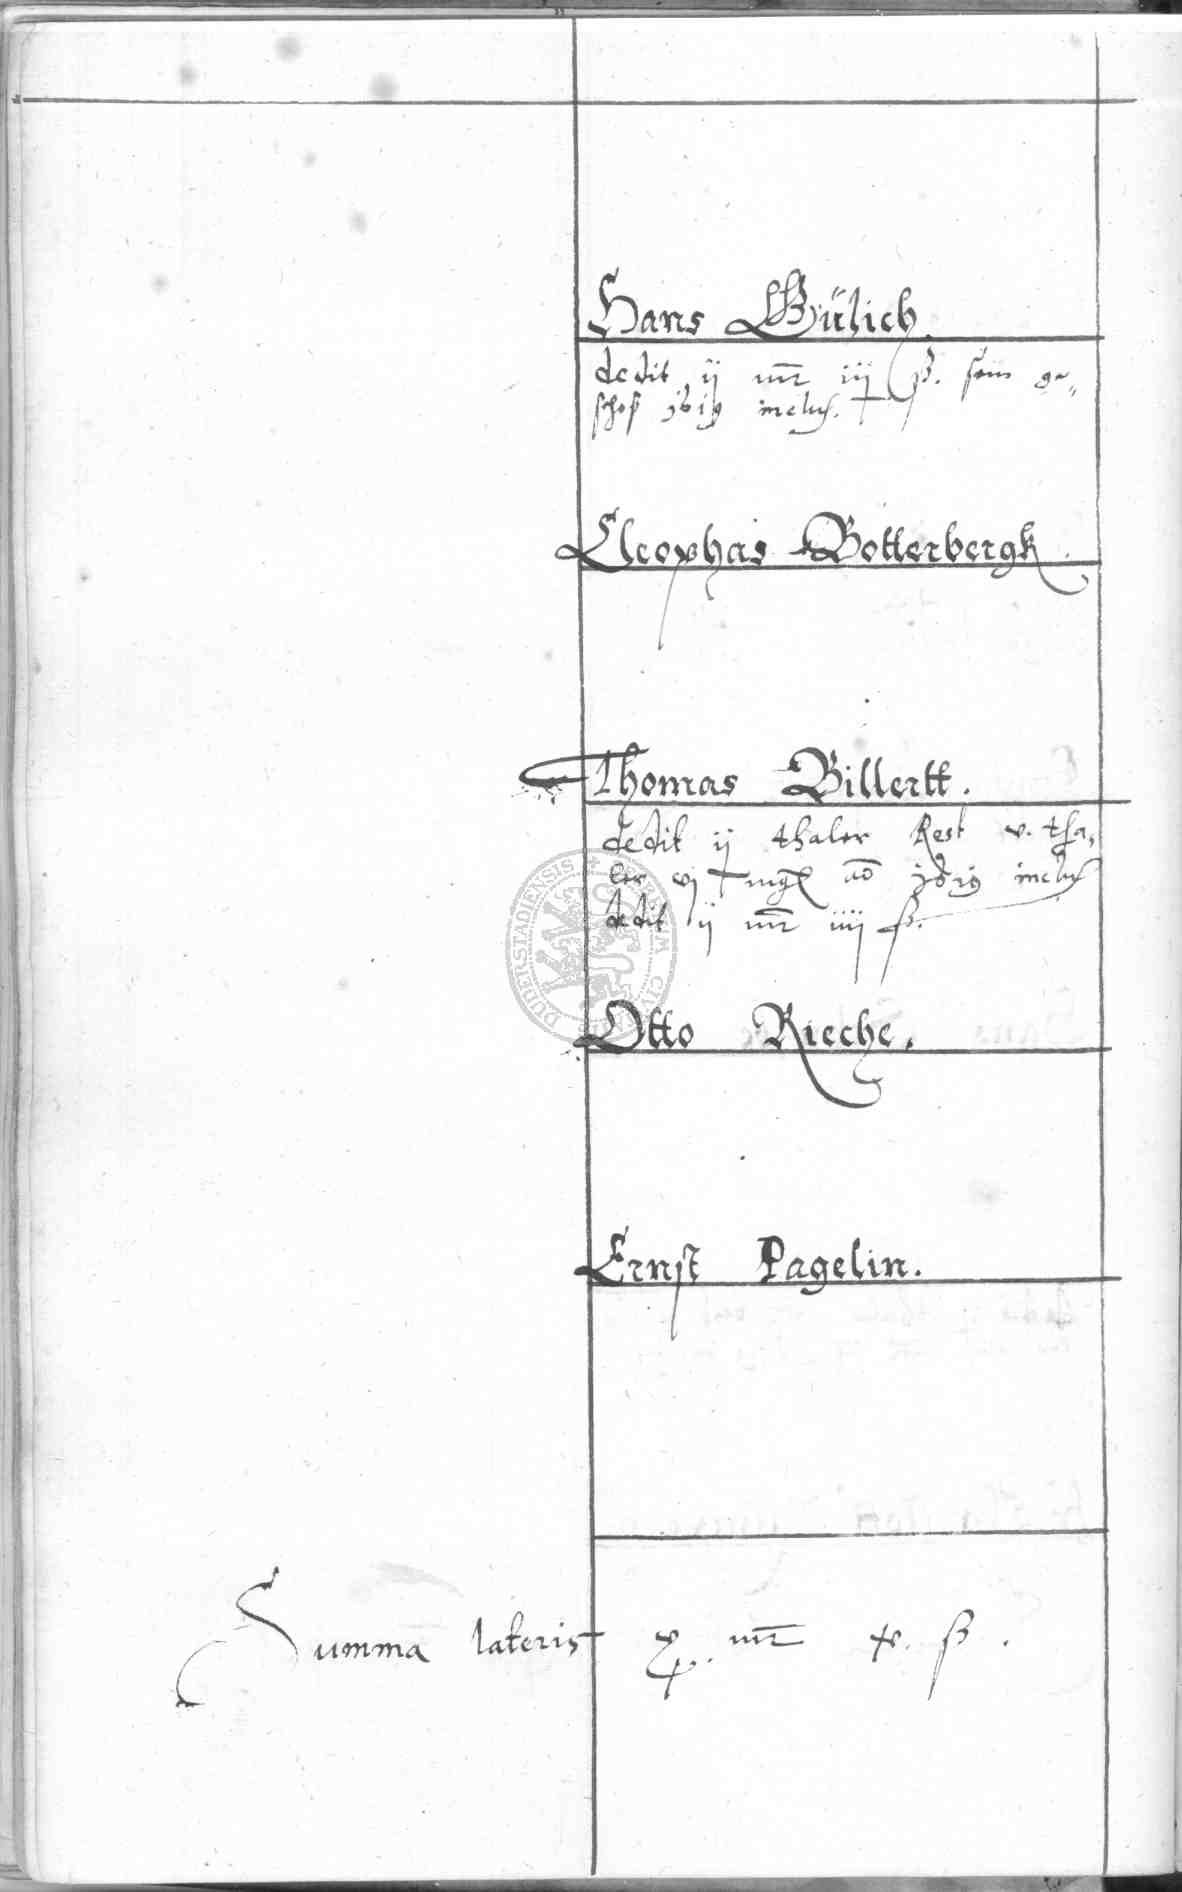 Hans Gülich
dedit ij mr iij ß. sein ge-
schoß 1619 inclus.
Cleophas Botterbergk
Thomas Billertt.
dedit ij thaler Rest v. tha,
ler vj mgl ao 1619 inclus
dedit ij mr iiij ß.
DUDERSTADIENSIS CIVITATIS
Otto Rieche.
Ernst Pagelin.
Summa lateris mr ß.